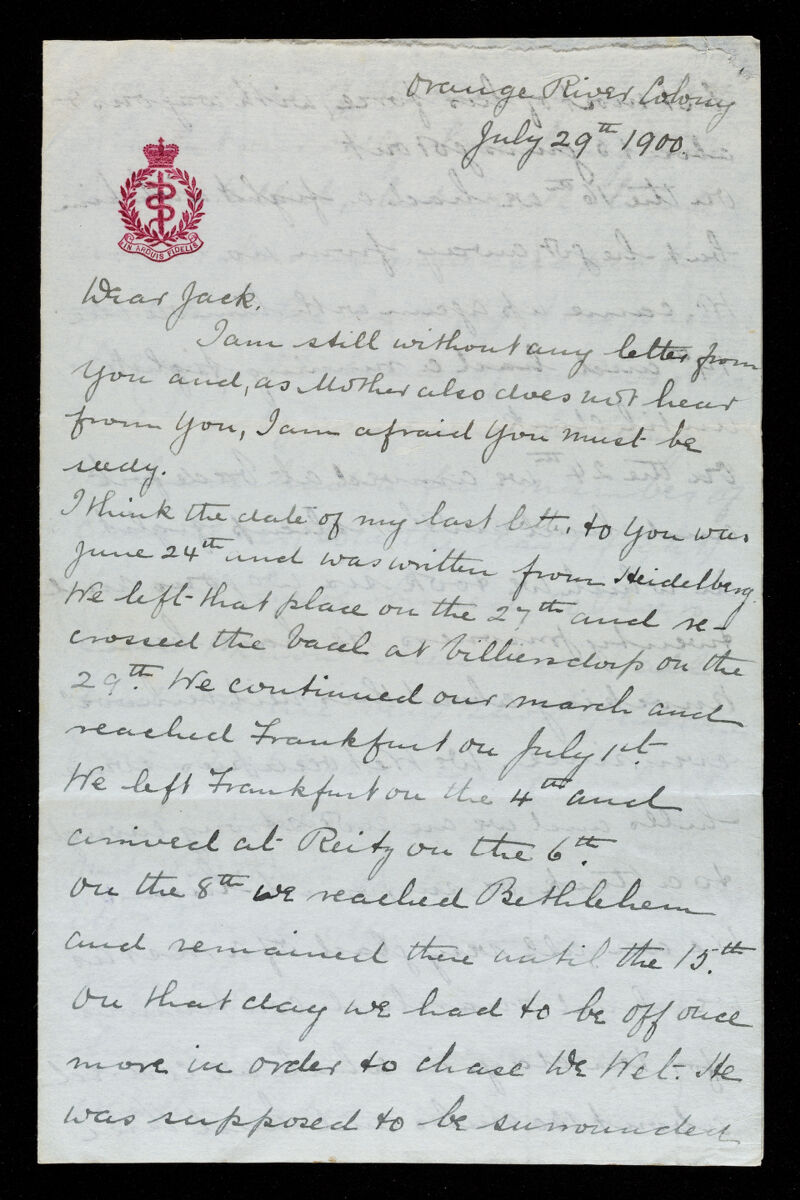 Orange River Colony
July 29th 1900
IN ARDUIS FIDELIS
Dear Jack.
I am still without any letter from
you and, as Mother also does not hear
from you, I am afraid you must be
seedy.
I think the date of my last letter to you was
June 24th and was written from Heidelberg.
We left that place on the 27th and re-
crossed the Vaal at Villiersdorp on the
29th. We continued our march and
reached Frankfurt on July 1st.
We left Frankfurt on the 4th and
arrived at Reitz on the 6th.
On the 8th we reached Bethlehem
and remained there until the 15th.
On that day we had to be off once
more in order to chase De Wet. He
was supposed to be surrounded